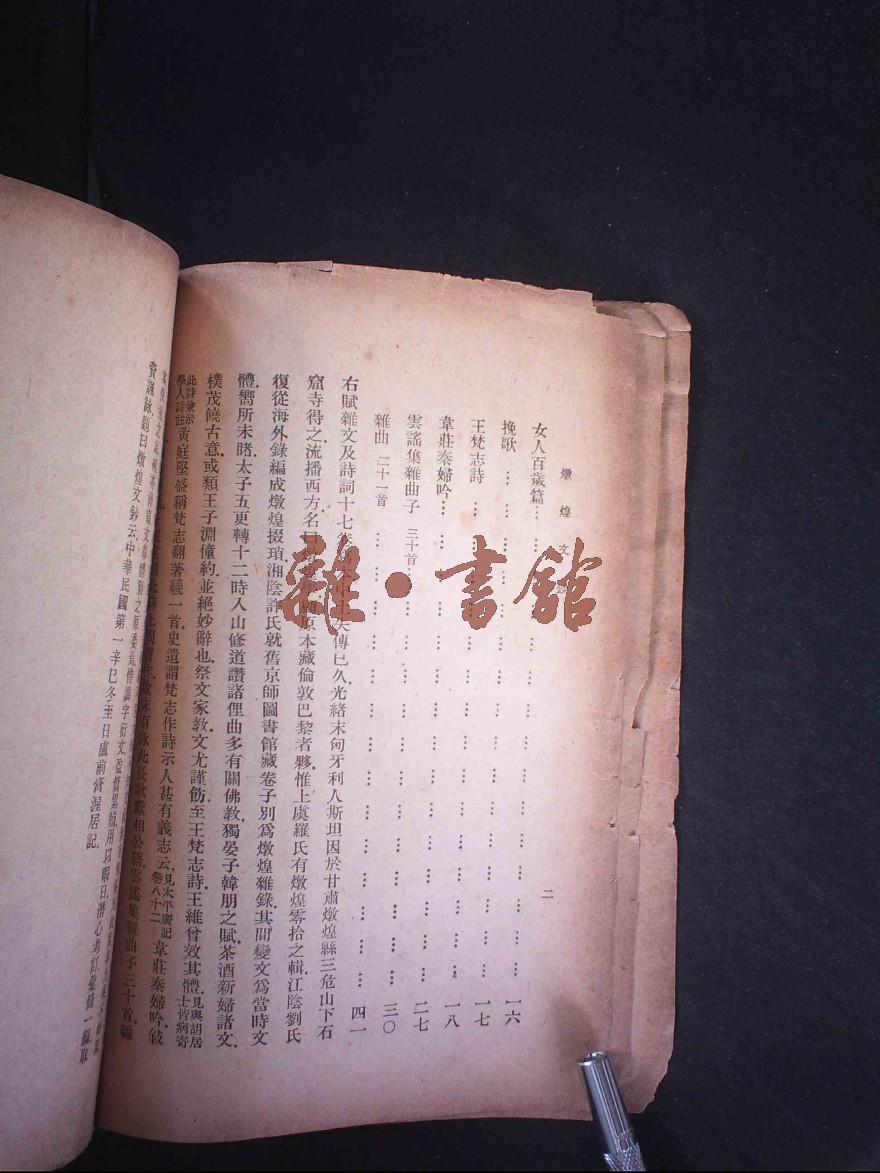 燉煌文
二
女人百歲篇 一六
挽歌 一七
王梵志詩 一八
韋莊秦婦吟 二七
雲謠集雜曲子 三十首 三〇
雜曲 二十一首 四一
右賦雜文及詩詞十七 失傳已久光緒末匈牙利人斯坦因於甘肅燉煌縣三危山下石
窟寺得之流播西方名 原本藏倫敦巴黎者夥惟上虞羅氏有燉煌零拾之輯江陰劉氏
復從海外錄編成燉煌掇瑣湘陰許氏就舊京師圖書館藏卷子別爲燉煌雜錄其間變文爲當時文
體嚮所未睹太子五更轉十二時入山修道讚諸俚曲多有關佛教獨晏子韓朋之賦茶酒新婦諸文
樸茂饒古意或類王子淵僮約並絕妙辭也祭文家教文尤謹飭至王梵志詩王維曾效其體見與胡居士皆病寄
此詩兼示學人詩註黃庭堅盛稱梵志翻著襪一首史遺謂梵志作詩示人甚有義志云見太平廣記卷八十二韋莊秦婦吟敍
此長歌獻相公語雲謠集雜曲子三十首雜
用以暇日潛心考訂彙錄一編取
便諷詠題曰燉煌文鈔云中華民國第一辛巳冬至日盧前膏渥居記
雜·書館